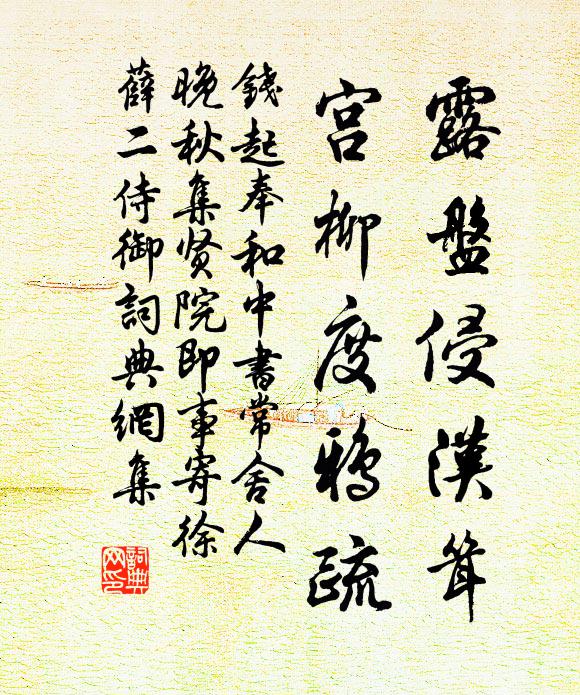 露盤侵漢耸
宫柳度鴉疏
錢起奉和中書常舍人
晚秋集贤院即事寄徐
薛二侍御詞典網集
詞典网印